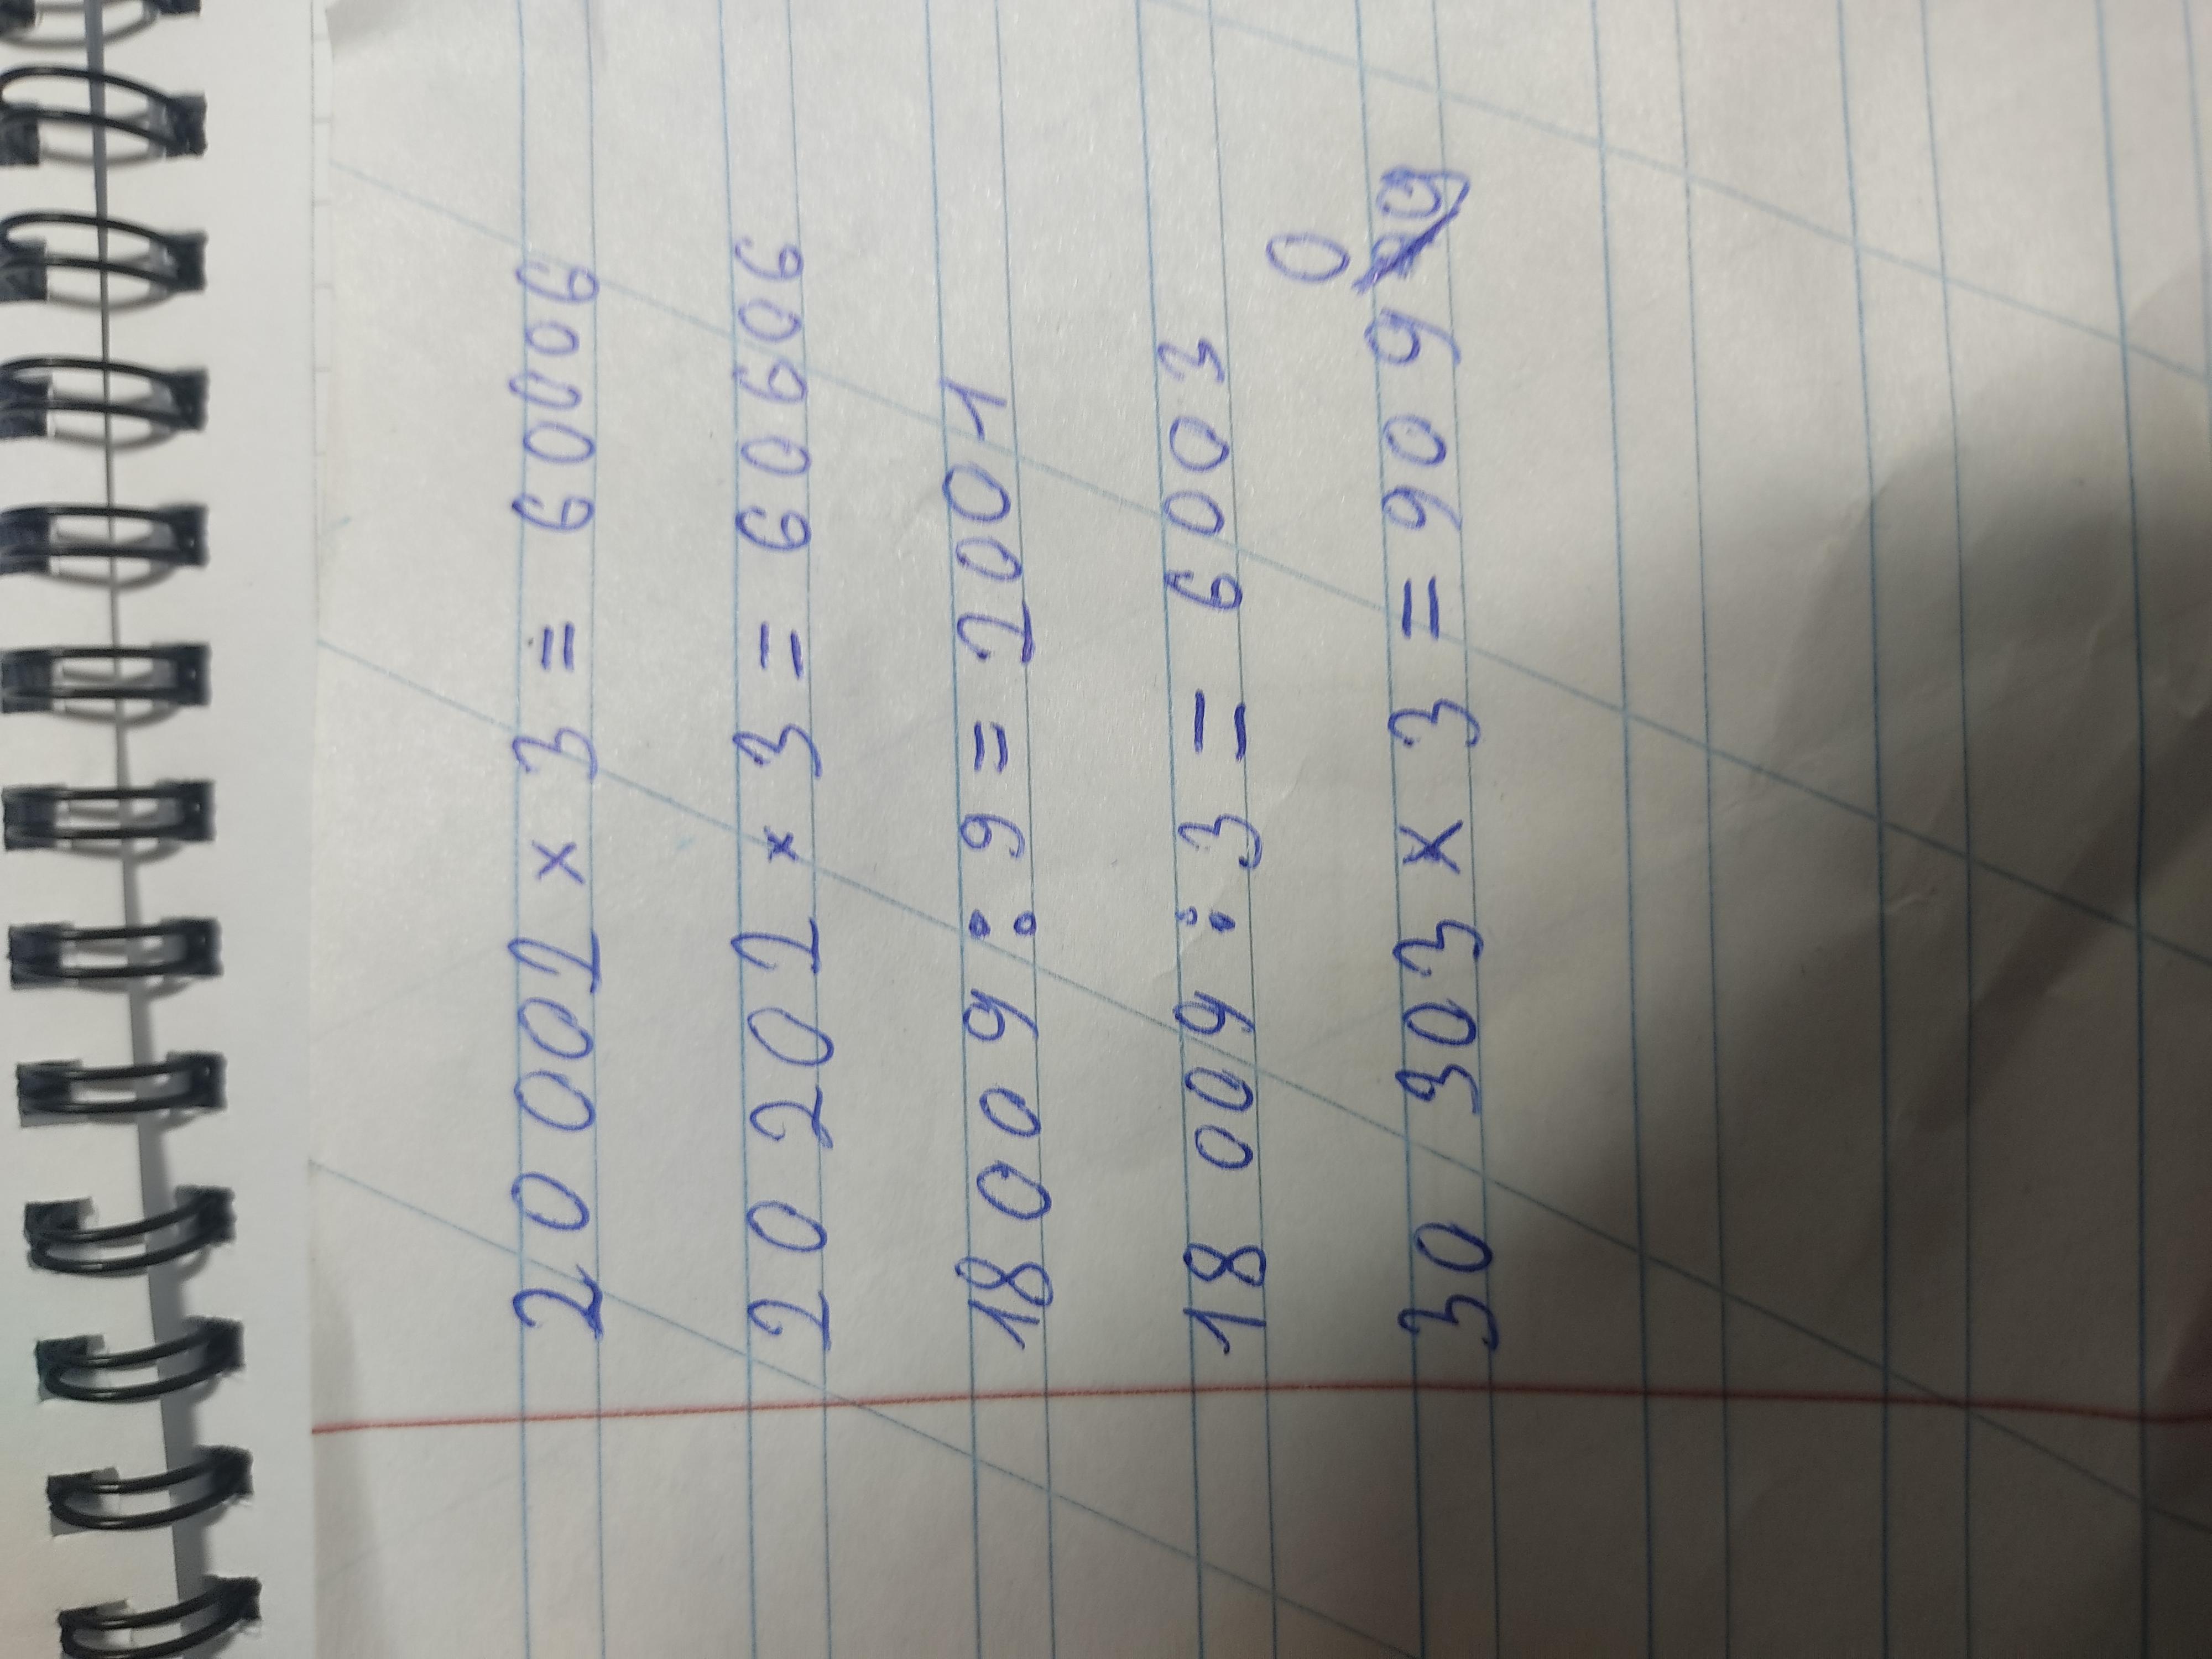 20 002 x 3 = 60006
20 202 x 3 = 60606
18 009 : 9 = 2001
18 009 : 3 = 6003
0
30 303 x 3 = 909